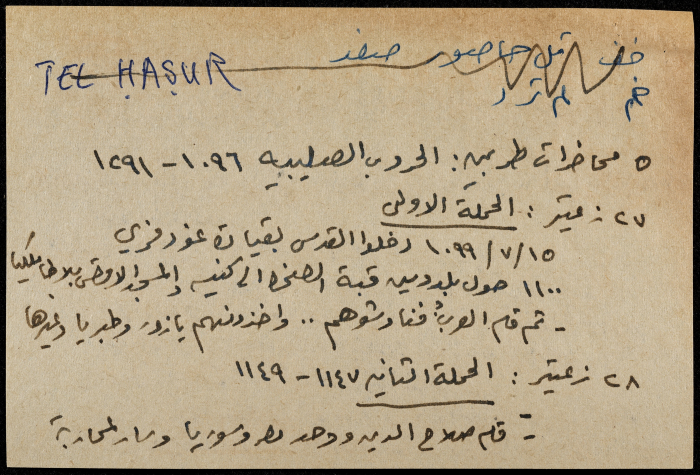 تل حاصور صفد
TEL HAṢUR
لم ترد
٥ محاضرات طربين: الحروب الصليبية ١٠٩٦ - ١٢٩١
٢٧ زعيتر: الحملة الاولى
١٥/٧/١٠٩٩ دخلوا القدس بقيادة غودفري
١١٠٠ حول بلدوين قبة الصخرة الى كنيسة والمسجد الاقصى بلاطا ملكيا
- ثم قام العرب فناوشوهم .. واخذوا منهم يازور وطبريا وغيرها
٢٨ زعيتر: الحملة الثانية ١١٤٧ - ١١٤٩
- قام صلاح الدين ووحد مصر وسوريا وسار لمحاربة